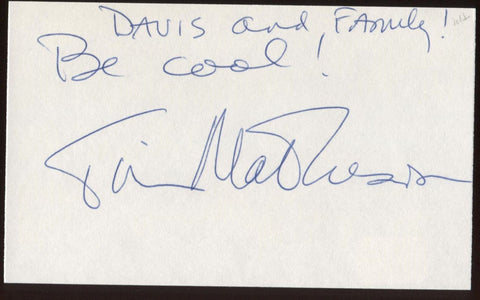 DAVIS and FAmily!
Be cool!
Tim Matheson